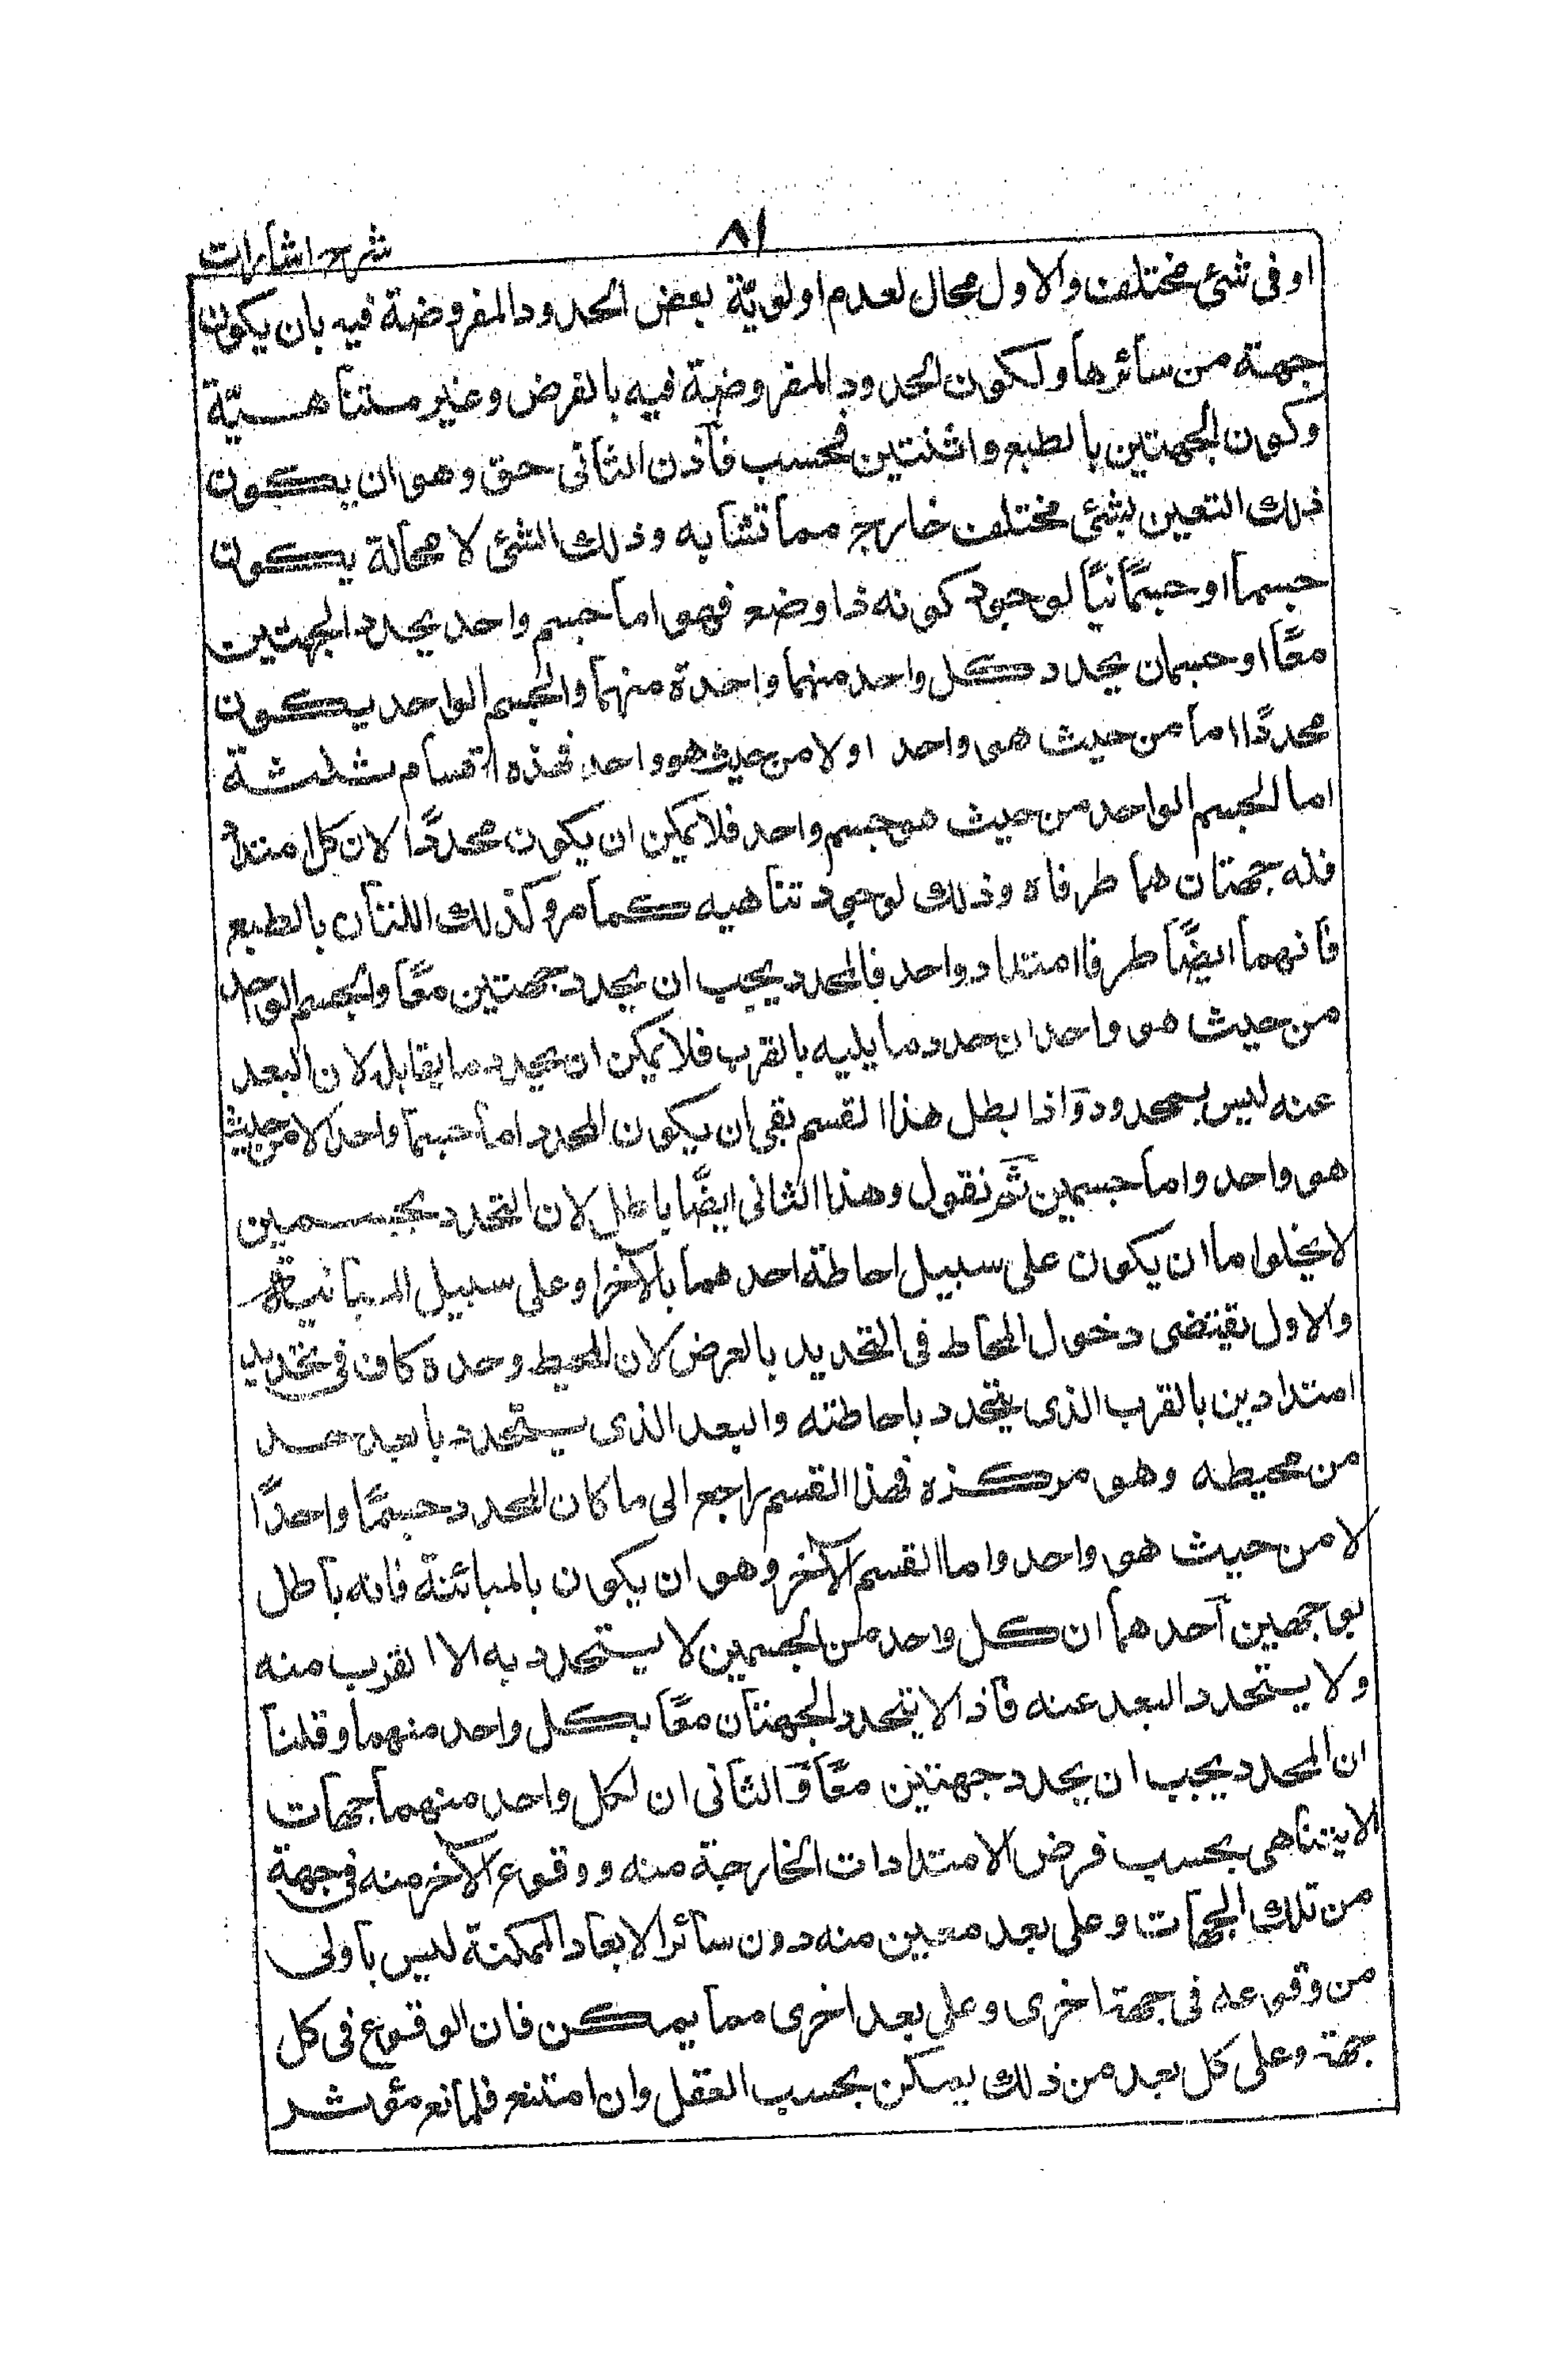 ۸۱
شرح اشارات
او فى شئ مختلف والاول محال لعدم اولويّة بعض الحدود المفروضة فيه بان يكون
جهة من سائرها ولكون الحدود المفروضة فيه بالفرض وغير متناهــيّة
وكون الجهتين بالطبع واثنتين فحسب فآذن الثانى حق وهو ان يكون
ذلك التعين لشئ مختلف خارج مما تشابه وذلك الشئ لا محالة يكون
جسما او جسمانيًا لوجود كونه ذا وضع فهو اما جسم واحد يحدد الجهتين
معًا او جسمان يحدد كل واحد منهما واحدة منهما والجسم الواحد يكون
محددًا اما من حيث هو واحد اولا من حيث هو واحد فهذه اقسام ثلثة
اما الجسم الواحد من حيث هو جسم واحد فلا يمكن ان يكون محددًا لان كل امتداد
فله جهتان هما طرفاه وذلك لوجود تناهيه كما مر وكذلك اللتان بالطبع
فانهما ايضًا طرفا امتداد واحد فالمحدد يجب ان يحدد جهتين معًا والجسم الواحد
من حيث هو واحد ان حدد ما يليه بالقرب فلا يمكن ان يحدد ما يقابله لان البعد
عنه ليس بمحدود وَاذا بطل هذا القسم بقى ان يكون المحدد اما جسما واحدا لا من حيث
هو واحد واما جسمين ثم نقول وهذا الثانى ايضًا باطل لان التحدد بجسمين
لا يخلوا ما ان يكون على سبيل احاطة احدهما بالآخر او على سبيل المبائنة
والاول يقتضى دخول المحاط فى التحديد بالعرض لان المحيط وحده كاف فى تحديد
امتدادين بالقرب الذى يتحدد باحاطته والبعد الذى يتحدد بابعد حد
من محيطه وهو مركزه فهذا القسم راجع الى ما كان المحدد جسمًا واحدًا
لا من حيث هو واحد واما القسم الآخر وهو ان يكون بالمبائنة فانه باطل
بوجهين آحدهما ان كل واحد من الجسمين لا يتحدد به الا القرب منه
ولا يتحدد البعد عنه فاذ الا يتحدد الجهتان معًا بكل واحد منهما وقلنا
ان المحدد يجب ان يحدد جهتين معًا وَ الثانى ان لكل واحد منهما جهات
لا يتناهى بحسب فرض الامتدادات الخارجة منه ووقوع الآخر منه فى جهة
من تلك الجهات وعلى بعد معين منه دون سائر الابعاد الممكنة ليس باولى
من وقوعه فى جهة اخرى وعلى بعد اخرى مما يمكن فان الوقوع فى كل
جهة وعلى كل بعد من ذلك يمكن بحسب العقل وان امتنع فلمانع مؤثر